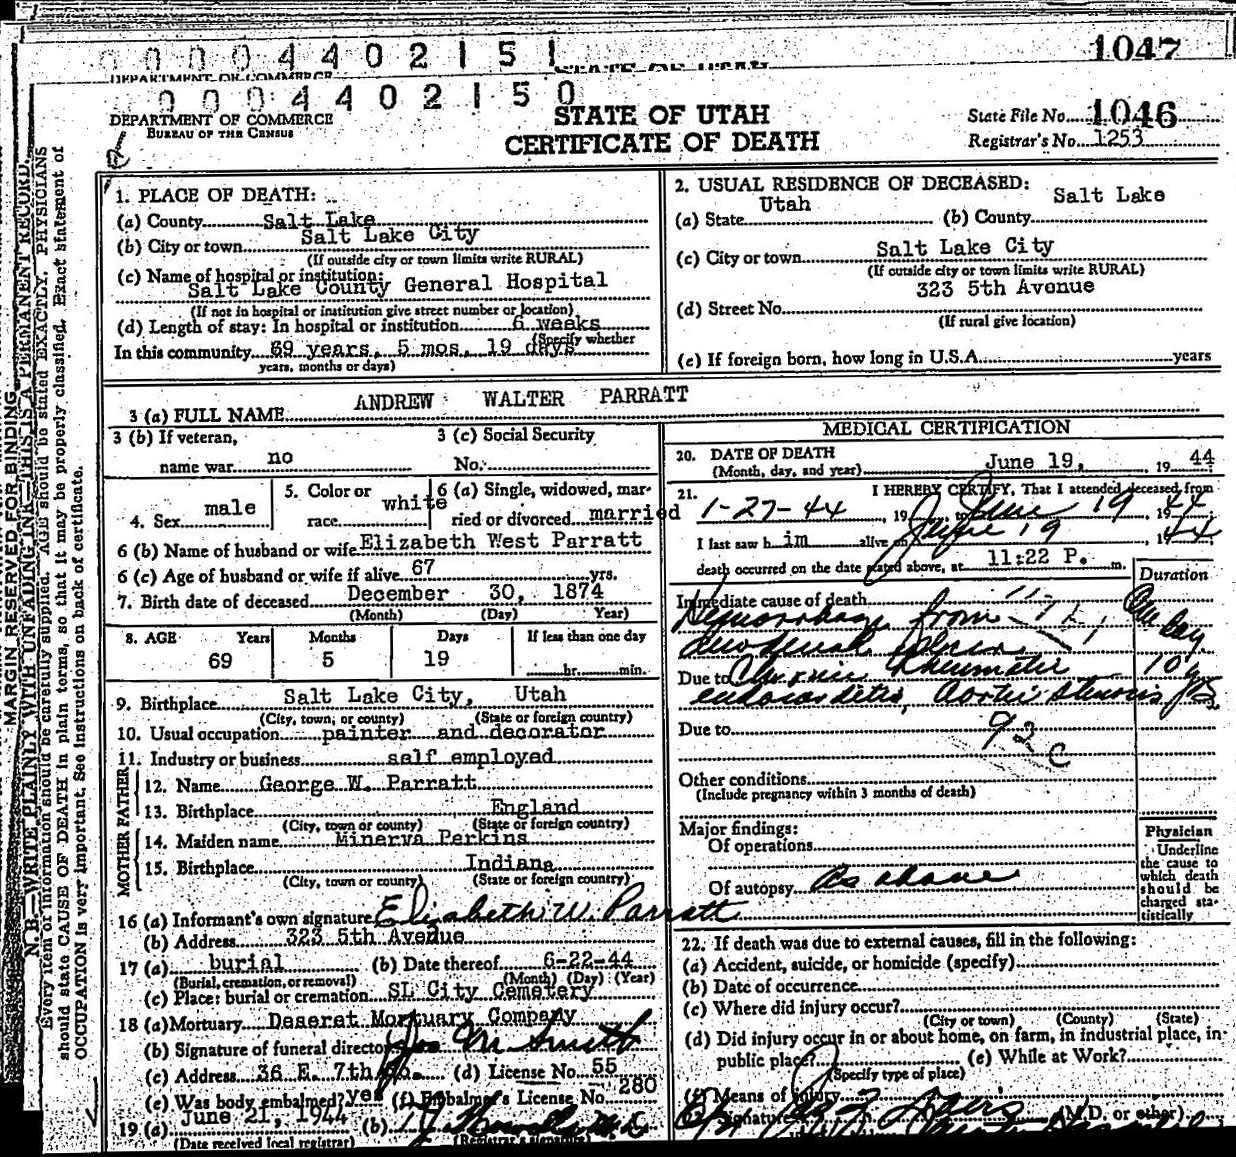 0 0 0 0 4 4 0 2 1 5 1
1047
DEPARTMENT OF COMMERCE
STATE OF UTAH
0 0 0 4 4 0 2 1 5 0
DEPARTMENT OF COMMERCE
BUREAU OF THE CENSUS
STATE OF UTAH
CERTIFICATE OF DEATH
State File No. 1046
Registrar's No. 1253
MARGIN RESERVED FOR BINDING
N. B.—WRITE PLAINLY WITH UNFADING INK—THIS IS A PERMANENT RECORD.
Every item of information should be carefully supplied. AGE should be stated EXACTLY. PHYSICIANS
should state CAUSE OF DEATH in plain terms, so that it may be properly classified. Exact statement of
OCCUPATION is very important. See instructions on back of certificate.
1. PLACE OF DEATH:
(a) County Salt Lake
(b) City or town Salt Lake City
(If outside city or town limits write RURAL)
(c) Name of hospital or institution:
Salt Lake County General Hospital
(If not in hospital or institution give street number or location)
(d) Length of stay: In hospital or institution 6 weeks
(Specify whether
In this community 69 years, 5 mos, 19 days
years, months or days)
2. USUAL RESIDENCE OF DECEASED:
(a) State Utah (b) County Salt Lake
(c) City or town Salt Lake City
(If outside city or town limits write RURAL)
(d) Street No. 323 5th Avenue
(If rural give location)
(e) If foreign born, how long in U.S.A. years
3 (a) FULL NAME ANDREW WALTER PARRATT
3 (b) If veteran,
name war no
3 (c) Social Security
No.
4. Sex male
5. Color or
race white
6 (a) Single, widowed, mar-
ried or divorced married
6 (b) Name of husband or wife Elizabeth West Parratt
6 (c) Age of husband or wife if alive 67 yrs.
7. Birth date of deceased December 30, 1874
(Month) (Day) Year)
8. AGE Years Months Days If less than one day
69 5 19 hr. min.
9. Birthplace Salt Lake City, Utah
(City, town, or county) (State or foreign country)
10. Usual occupation painter and decorator
11. Industry or business self employed
FATHER
12. Name George W. Parratt
13. Birthplace England
(City, town or county) (State or foreign country)
MOTHER
14. Maiden name Minerva Perkins
15. Birthplace Indiana
(City, town or county) (State or foreign country)
16 (a) Informant's own signature Elizabeth W. Parratt
(b) Address 323 5th Avenue
17 (a) burial (b) Date thereof 6-22-44
(Burial, cremation, or removal) (Month) (Day) (Year)
(c) Place: burial or cremation SL City Cemetery
18 (a) Mortuary Deseret Mortuary Company
(b) Signature of funeral director Jos M Smith
(c) Address 36 E. 7th So. (d) License No. 55
(e) Was body embalmed? yes (f) Embalmer's License No. 280
19 (a) June 21, 1944 (b)
(Date received local registrar) (Registrar's signature)
MEDICAL CERTIFICATION
20. DATE OF DEATH
(Month, day, and year) June 19, 19 44
21. I HEREBY CERTIFY, That I attended deceased from
1-27-44, 19 to June 19, 19 44
I last saw h im alive on June 19, 19 44
death occurred on the date stated above, at 11:22 P. m.
Duration
Immediate cause of death
Hemorrhage from One Day
duodenal ulcer
Due to Chronic Rheumatic 10 yrs
endocarditis, Aortic stenosis
Due to
92 c
Other conditions
(Include pregnancy within 3 months of death)
Major findings:
Of operations
Of autopsy As above
Physician
Underline
the cause to
which death
should be
charged sta-
tistically
22. If death was due to external causes, fill in the following:
(a) Accident, suicide, or homicide (specify)
(b) Date of occurrence
(c) Where did injury occur?
(City or town) (County) (State)
(d) Did injury occur in or about home, on farm, in industrial place, in
public place? (e) While at Work?
(Specify type of place)
(f) Means of injury
Signature (M.D. or other)